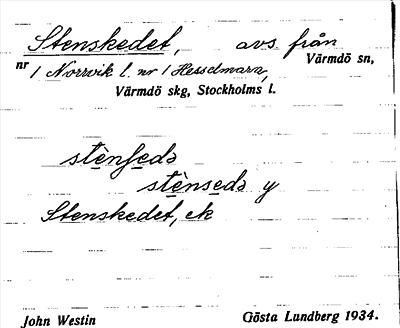 Stenskedet, avs. från
Värmdö sn,
nr 1 Norrvik l. nr 1 Hesselmara,
Värmdö skg, Stockholms l.
stènʃedə
stènsedə y
Stenskedet, ek
John Westin Gösta Lundberg 1934.